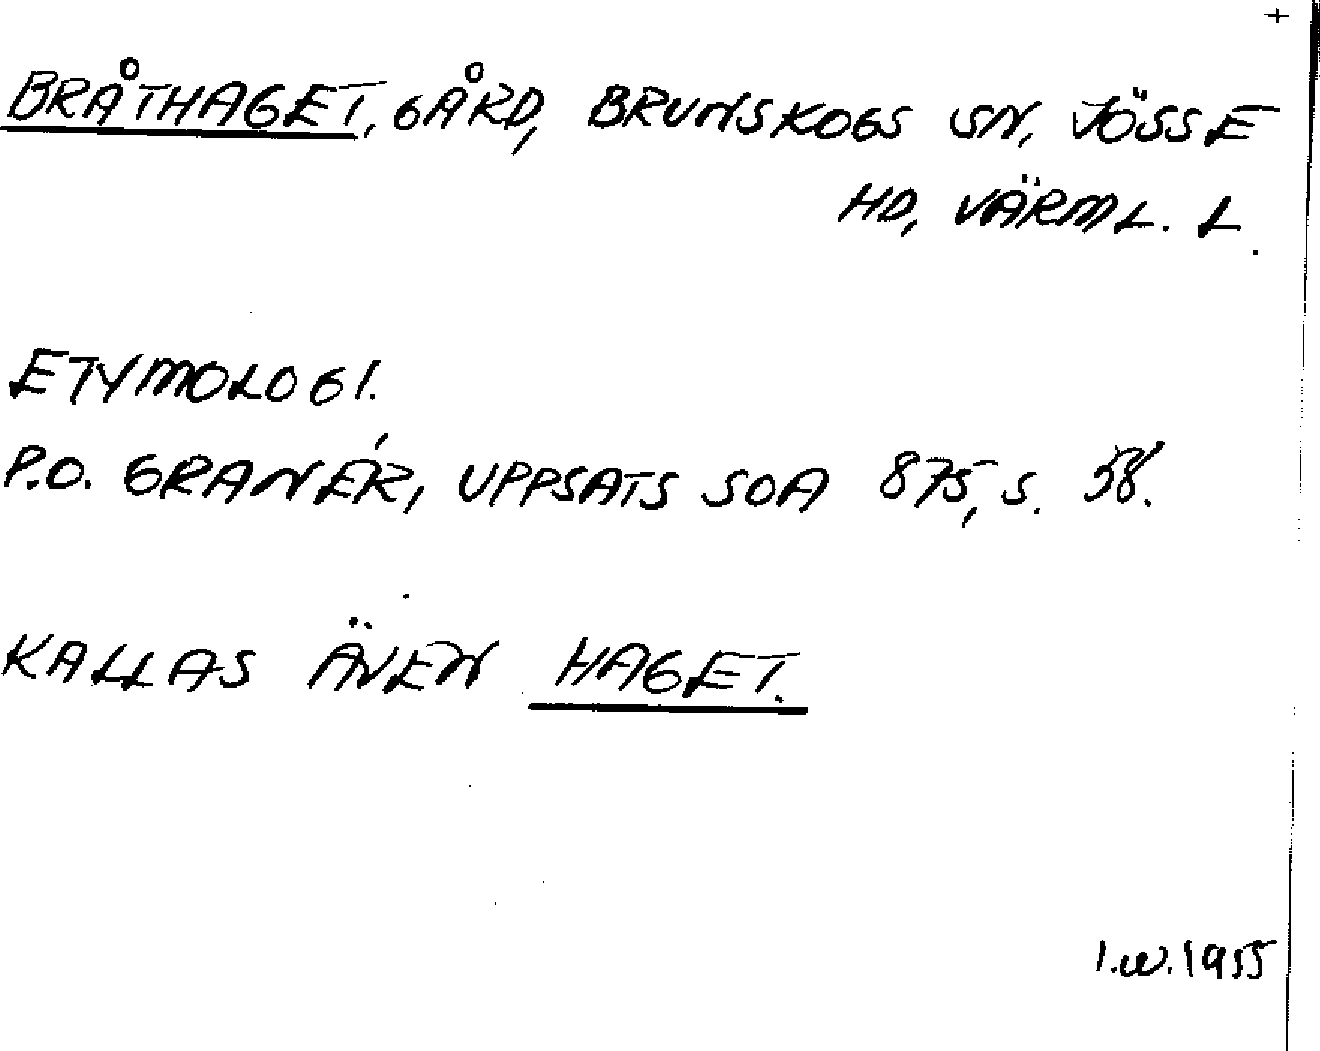 +
BRÅTHAGET, GÅRD, BRUNSKOGS SN, JÖSSE
HD, VÄRML. L.
ETYMOLOGI.
P.O. GRANÉR, UPPSATS SOA 875, S. 58.
KALLAS ÄVEN HAGET.
I.W. 1955